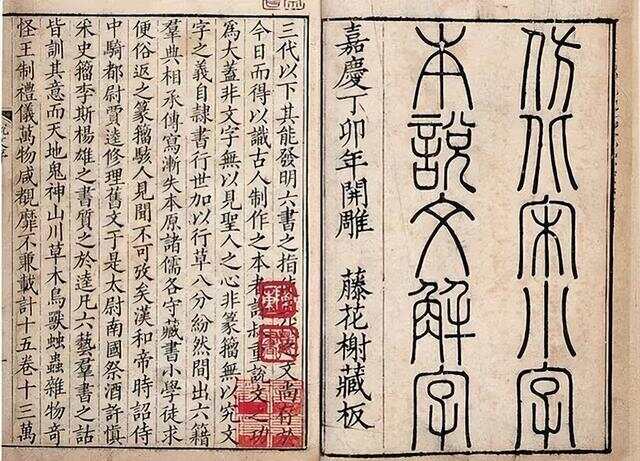 仿北宋小字
本說文解字
嘉慶丁卯年開雕　藤花榭藏板
三代以下其能發明六書之指之文尚存於
今日而得以識古人制作之本者許叔重說文之功
爲大蓋非文字無以見聖人之心非篆籀無以究文
字之義自隸書行世加以行草八分紛然間出六籍
羣典相承傳寫漸失本原諸儒各守藏書小學徒求
便俗返之篆籀駭人見聞不可攷矣漢和帝時詔侍
中騎都尉賈逵修理舊文于是太尉南國祭酒許愼
采史籀李斯楊雄之書質之於逵凡六藝羣書之詁
皆訓其意而天地鬼神山川草木鳥獸䖵蟲雜物奇
怪王制禮儀萬物咸覩靡不兼載計十五卷十三萬